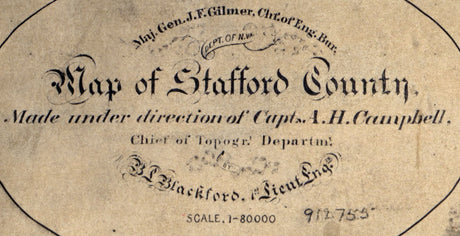 Maj. Gen. J. F. Gilmer, Chf. of Eng. Bur.
DEPT. OF N. VA.
Map of Stafford County,
Made under direction of Capt. A. H. Campbell,
Chief of Topogr.! Departm!
B L Blackford, 1st Lieut. Engs.
SCALE, 1-80000
912755